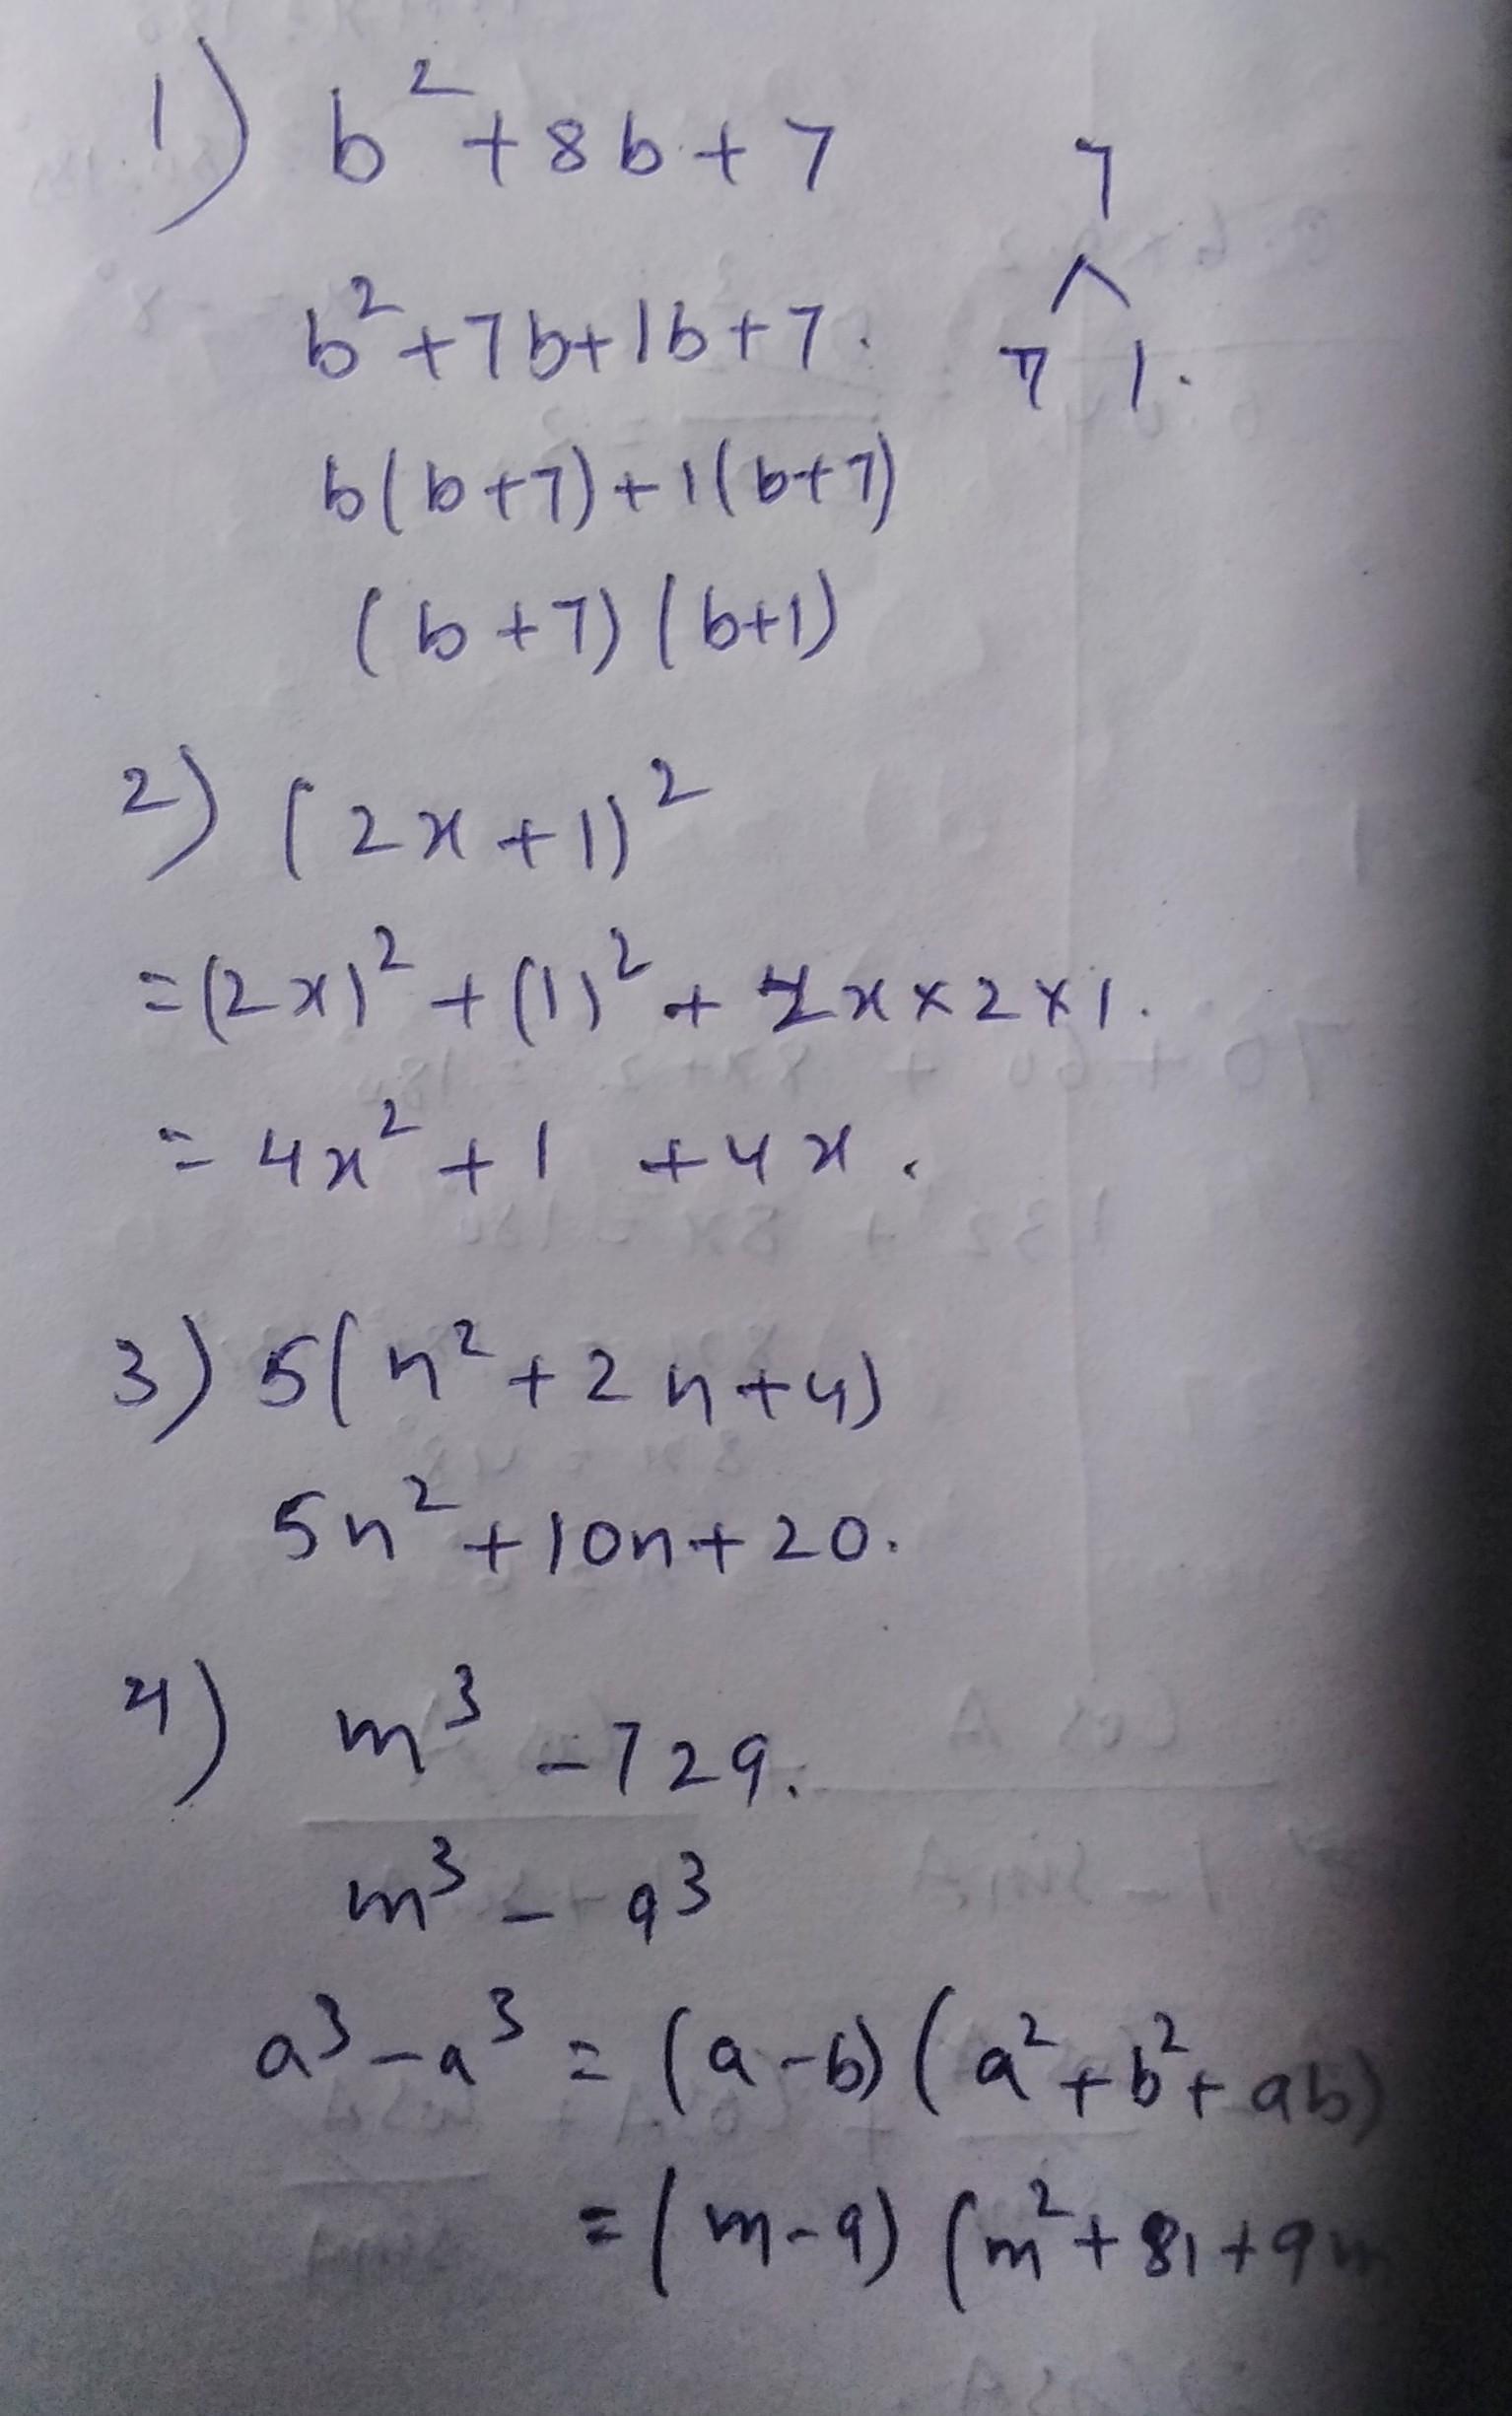 1) b² + 8b + 7
7
b² + 7b + 1b + 7.
7 1.
b(b+7) + 1(b+7)
(b+7)(b+1)
2) (2x+1)²
= (2x)² + (1)² + 2x × 2 × 1.
= 4x² + 1 + 4x.
3) 5(n² + 2n + 4)
5n² + 10n + 20.
4) m³ - 729.
m³ - 9³
a³ - a³ = (a-b)(a² + b² + ab)
= (m-9)(m² + 81 + 9m